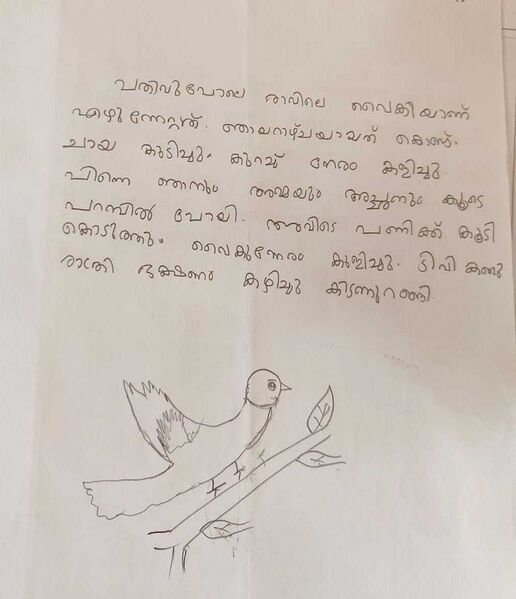 പതിവുപോലെ രാവിലെ വൈകിയാണ്
എഴുന്നേറ്റത്. ഞായറാഴ്ചയായത് കൊണ്ട്.
ചായ കുടിച്ചു. കുറച്ച് നേരം കളിച്ചു.
പിന്നെ ഞാനും അമ്മയും അച്ഛനും കൂടെ
പറമ്പിൽ പോയി. അവിടെ പണിക്ക് കൂടി
കൊടുത്തു. വൈകുന്നേരം കുളിച്ചു. ടിവി കണ്ടു
രാത്രി ഭക്ഷണം കഴിച്ചു കിടന്നുറങ്ങി.